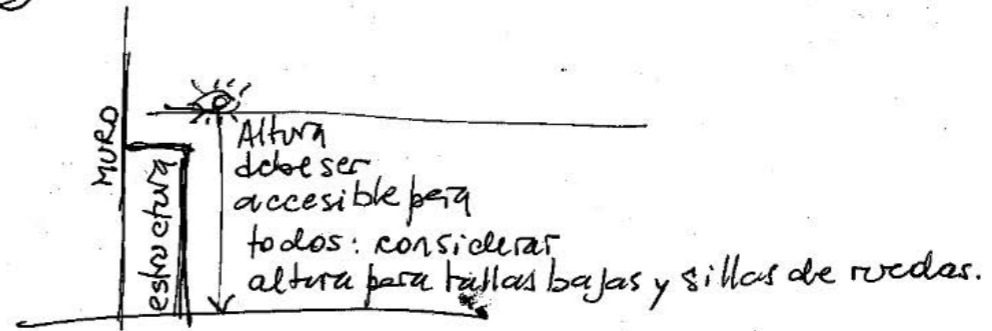 MURO
estructura
Altura
debe ser
accesible para
todos: considerar
altura para tallas bajas y sillas de ruedas.